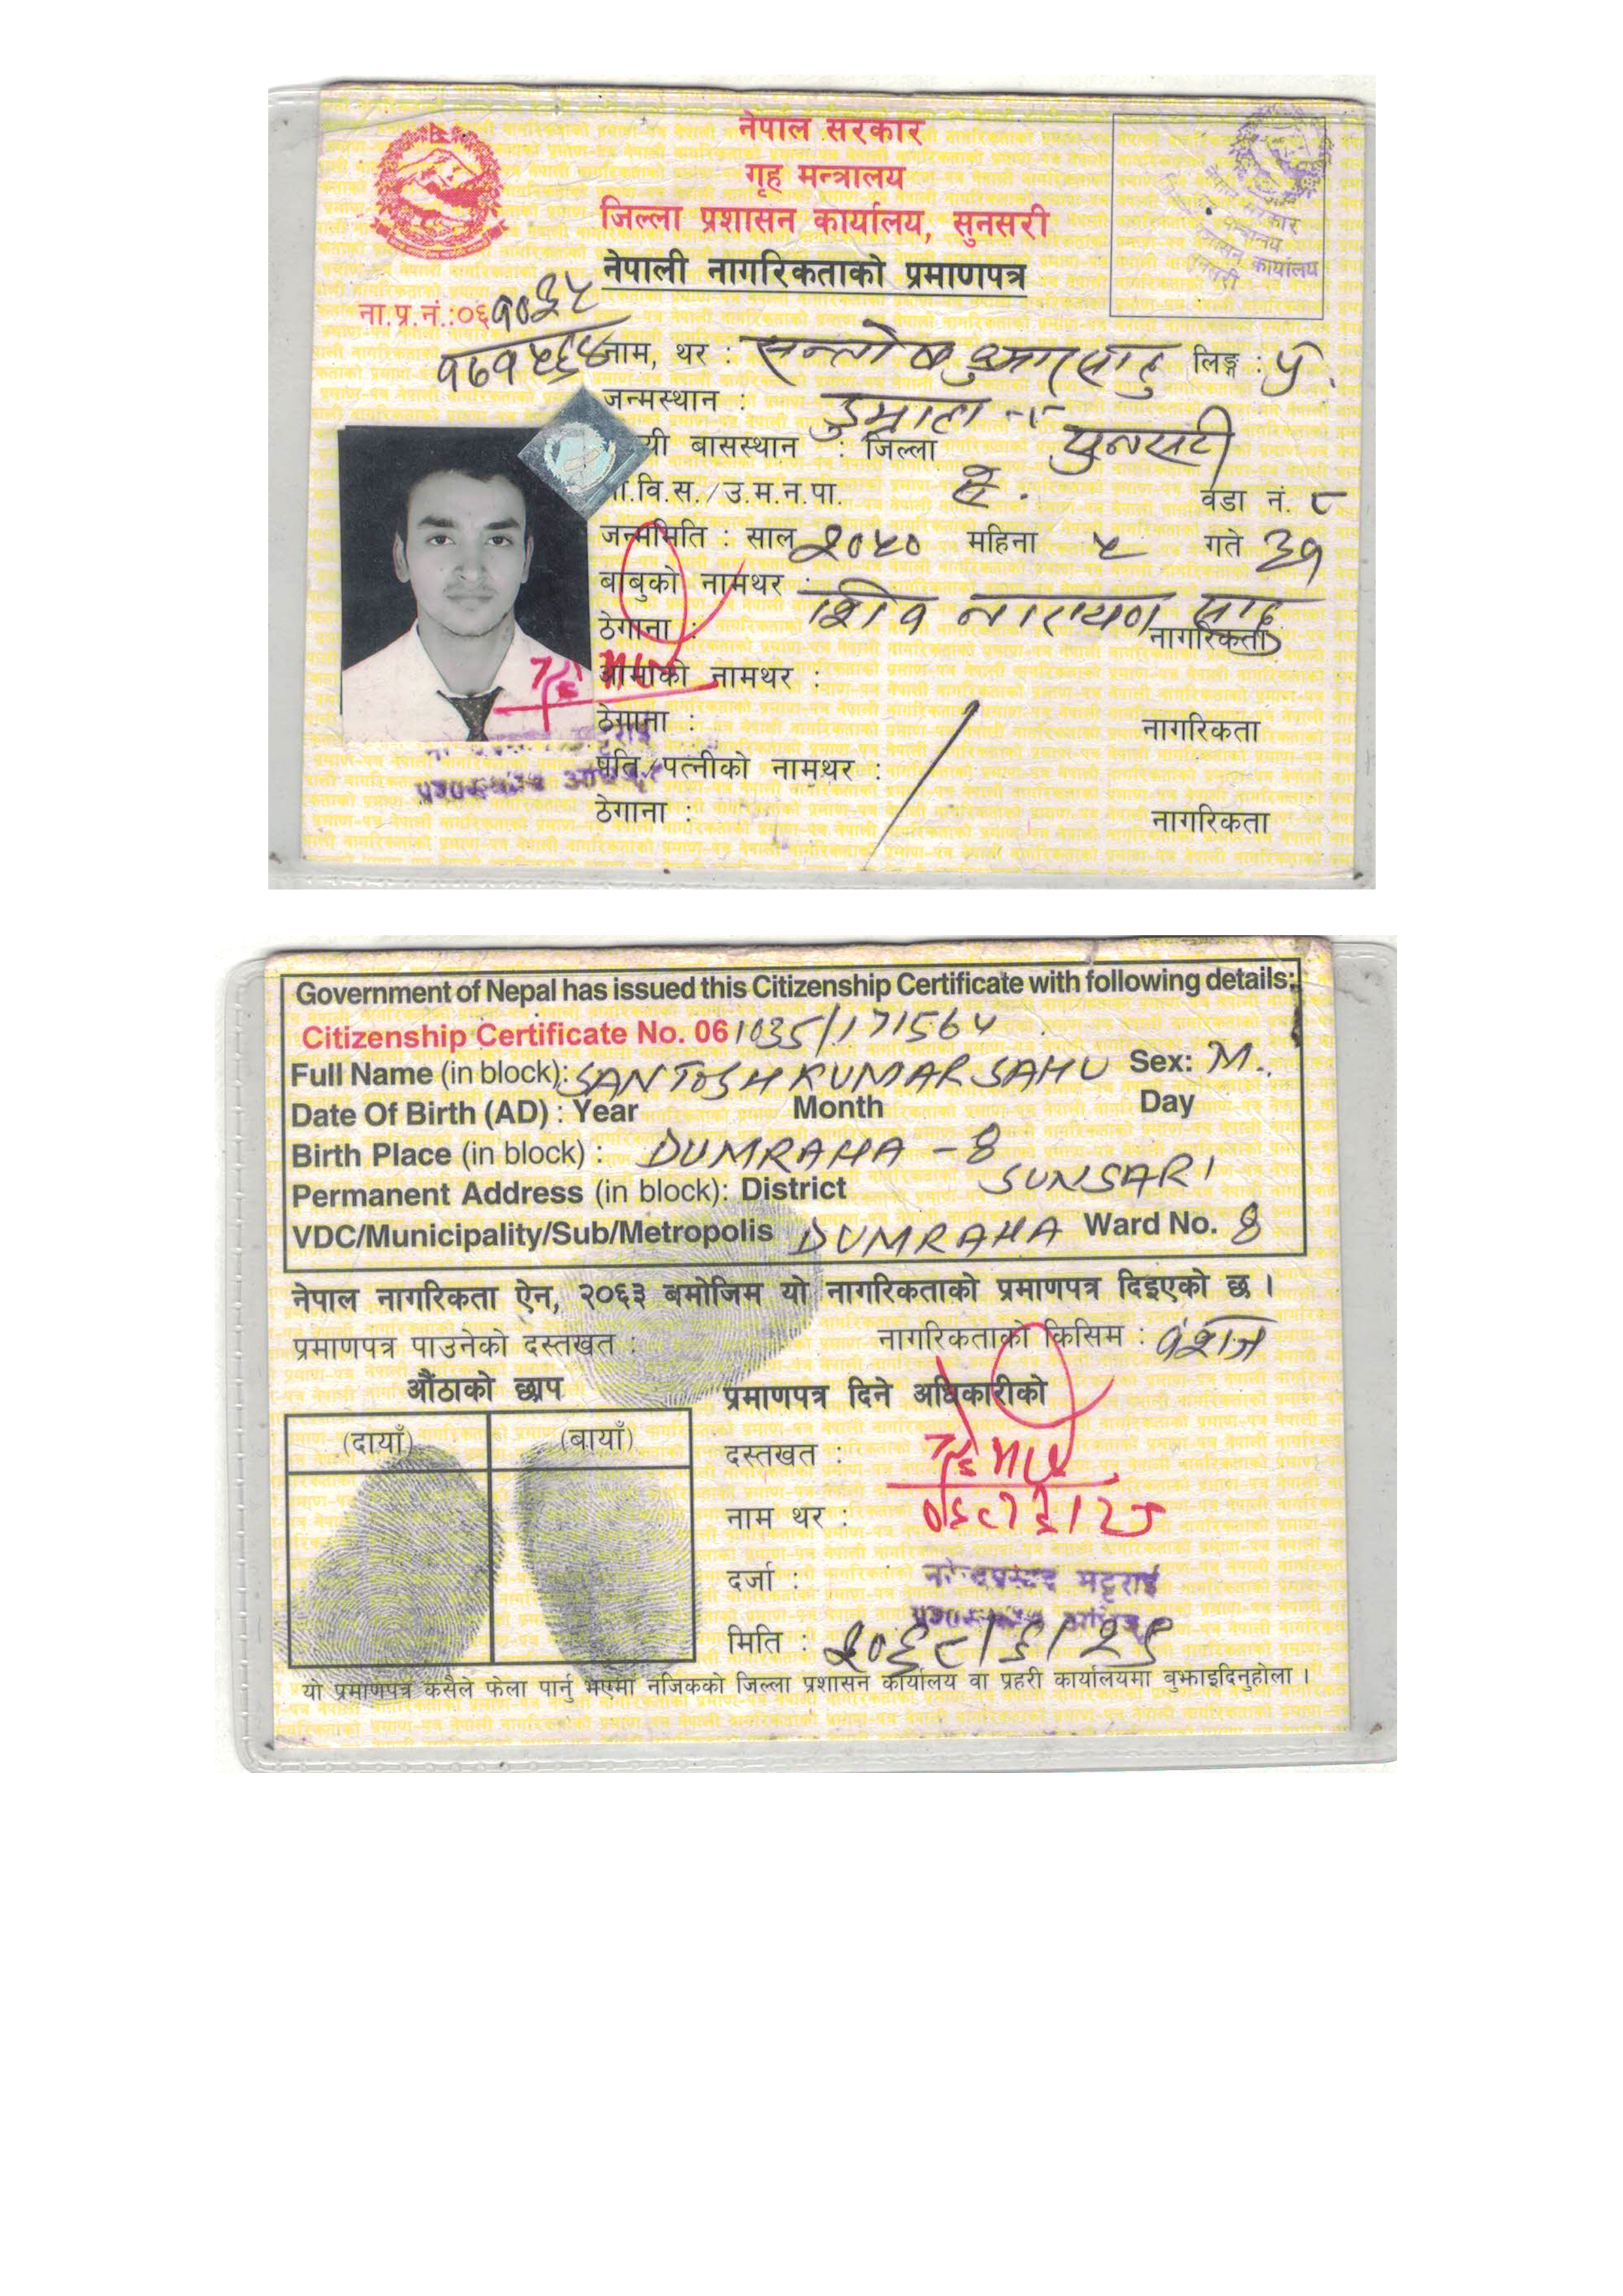 नेपाल सरकार
गृह मन्त्रालय
जिल्ला प्रशासन कार्यालय, सुनसरी
नेपाली नागरिकताको प्रमाणपत्र
ना.प्र.नं.:०६१०३५
१७१५६४
नाम, थर : सन्तोष कुमार साहु लिङ्ग : पु.
जन्मस्थान : डुम्राहा -८
यी बासस्थान : जिल्ला सुनसरी
गा.वि.स./उ.म.न.पा. ऐ. वडा नं. ८
जन्ममिति : साल २०५० महिना ५ गते ३१
बाबुको नामथर : शिव नारायण साहु
ठेगाना : नागरिकता
आमाको नामथर :
ठेगाना : नागरिकता
पति/पत्नीको नामथर :
ठेगाना : नागरिकता
Government of Nepal has issued this Citizenship Certificate with following details:
Citizenship Certificate No. 061035/171564
Full Name (in block): SANTOSH KUMAR SAHU Sex: M.
Date Of Birth (AD) : Year Month Day
Birth Place (in block) : DUMRAHA - 8
Permanent Address (in block): District SUNSARI
VDC/Municipality/Sub/Metropolis DUMRAHA Ward No. 8
नेपाल नागरिकता ऐन, २०६३ बमोजिम यो नागरिकताको प्रमाणपत्र दिइएको छ ।
प्रमाणपत्र पाउनेको दस्तखत : नागरिकताको किसिम : वंशज
औंठाको छाप प्रमाणपत्र दिने अधिकारीको
(दायाँ) (बायाँ)
दस्तखत :
नाम थर :
दर्जा : भट्टराई
मिति : २०६८/६/२९
यो प्रमाणपत्र कसैले फेला पार्नु भएमा नजिकको जिल्ला प्रशासन कार्यालय वा प्रहरी कार्यालयमा बुझाइदिनुहोला ।